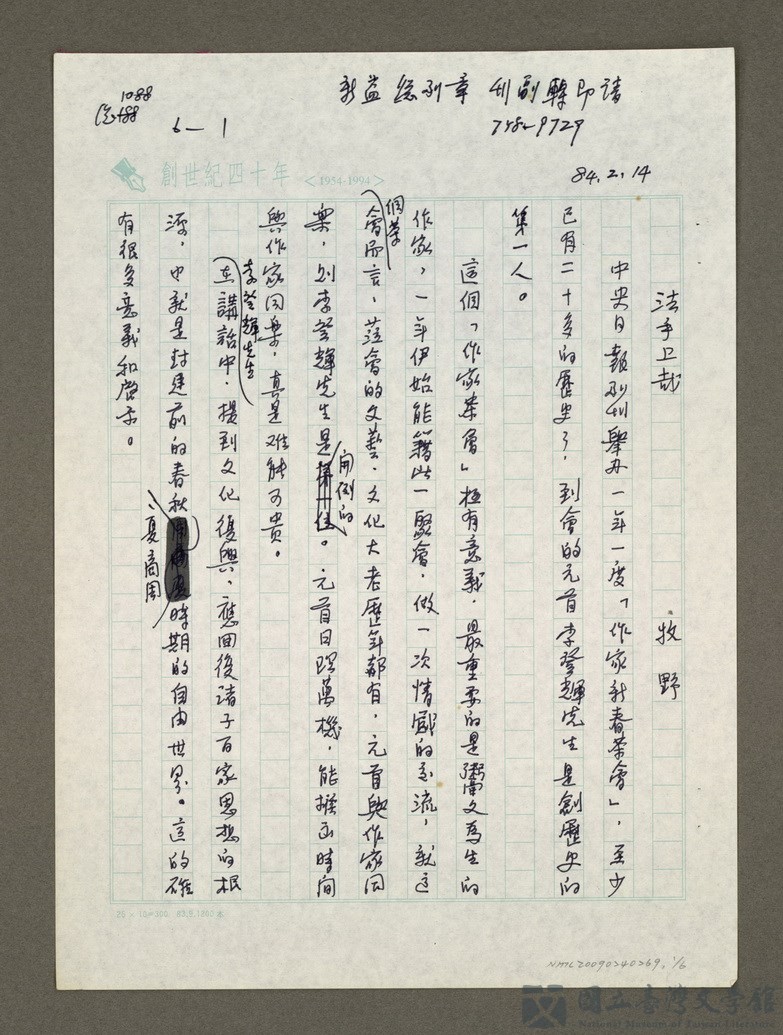 請即轉副刊章列總 益新
758-9729
84.2.14
1088
6-1
創世紀四十年 <1954-1994>
法乎上哉 牧野
中央日報副刊舉办一年一度「作家新春茶會」，至少
已有二十多的歷史了，到會的元首李登輝先生是創歷史的
第一人。
這個「作家茶會」極有意義，最重要的是鬻文為生的
作家，一年伊始能籍此一聚會，做一次情感的交流，就這
個茶
會而言，蒞會的文藝、文化大老歷年都有，元首與作家同
樂，則李登輝先生是
開例的
。元首日理萬機，能撥出時間
與作家同樂，真是難能可貴。
李登輝先生
在講話中，提到文化復興，應回復諸子百家思想的根
源，也就是封建前的春秋
、夏商周
時期的自由世界。這的確
有很多意義和啟示。
25 × 12=300
NMTL20090240269, 1/6
國立臺灣文學館
National Museum of Taiwan Literature